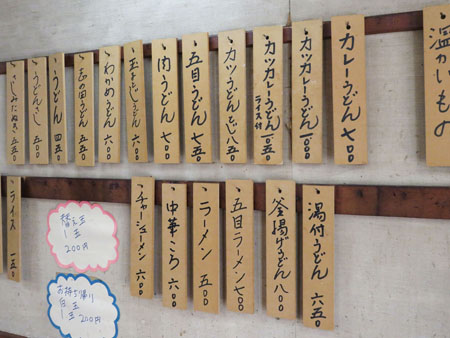 温かいもの
カレーうどん 七〇〇
カツカレーうどん 一、〇〇〇
カツカレーうどん ライス付 一、〇五〇
カツうどんとじ 八五〇
五目うどん 七五〇
肉うどん 七〇〇
玉子とじうどん
わかめうどん 六〇〇
志の田うどん 五五〇
うどん 四五〇
五〇〇
五五〇
湯付うどん 六五〇
釜揚げうどん 八〇〇
五目ラーメン 七〇〇
ラーメン 五〇〇
中華ころ 六〇〇
チャーシューメン 六〇〇
替え玉
1玉
200円
お持ち帰り
白玉
1玉 200円
ライス 一五